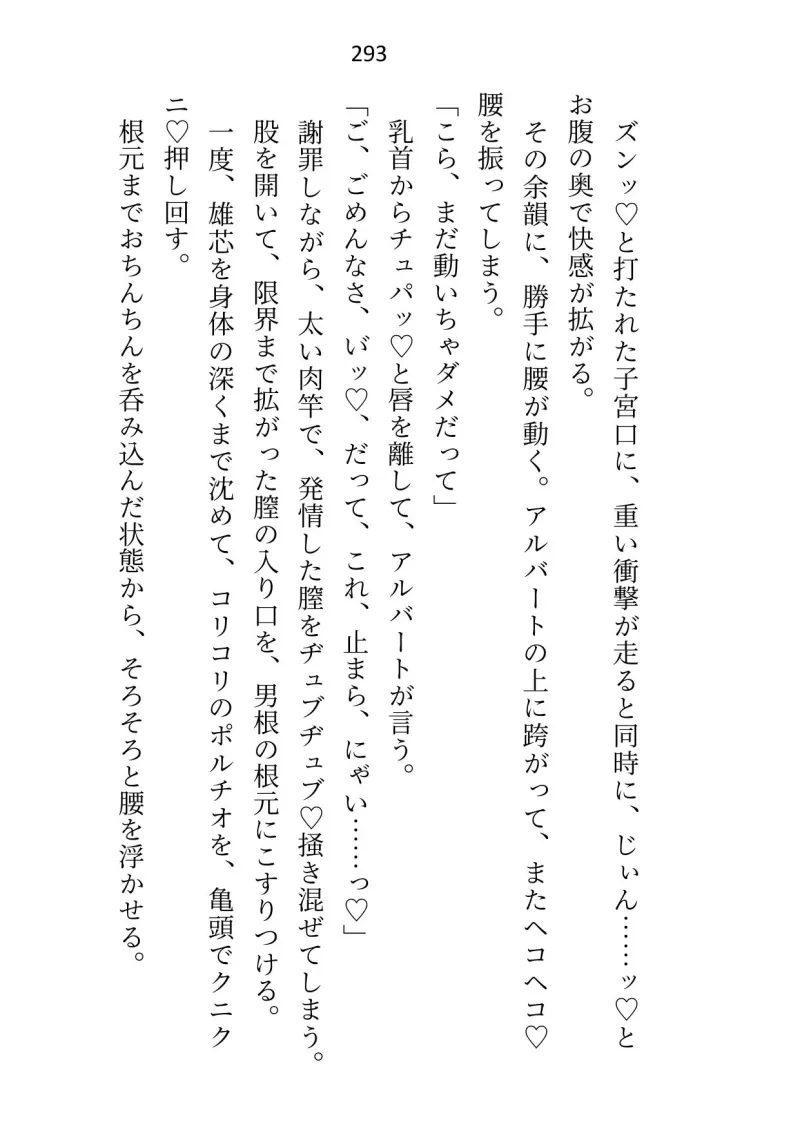 293
ズンッ♡と打たれた子宮口に、重い衝撃が走ると同時に、じぃん……ッ♡と
お腹の奥で快感が拡がる。
その余韻に、勝手に腰が動く。アルバートの上に跨がって、またヘコヘコ♡
腰を振ってしまう。
「こら、まだ動いちゃダメだって」
乳首からチュパッ♡と唇を離して、アルバートが言う。
「ご、ごめんなさ、い゛ッ♡、だって、これ、止まら、にゃい……っ♡」
謝罪しながら、太い肉竿で、発情した膣をヂュブヂュブ♡掻き混ぜてしまう。
股を開いて、限界まで拡がった膣の入り口を、男根の根元にこすりつける。
一度、雄芯を身体の深くまで沈めて、コリコリのポルチオを、亀頭でクニク
ニ♡押し回す。
根元までおちんちんを呑み込んだ状態から、そろそろと腰を浮かせる。